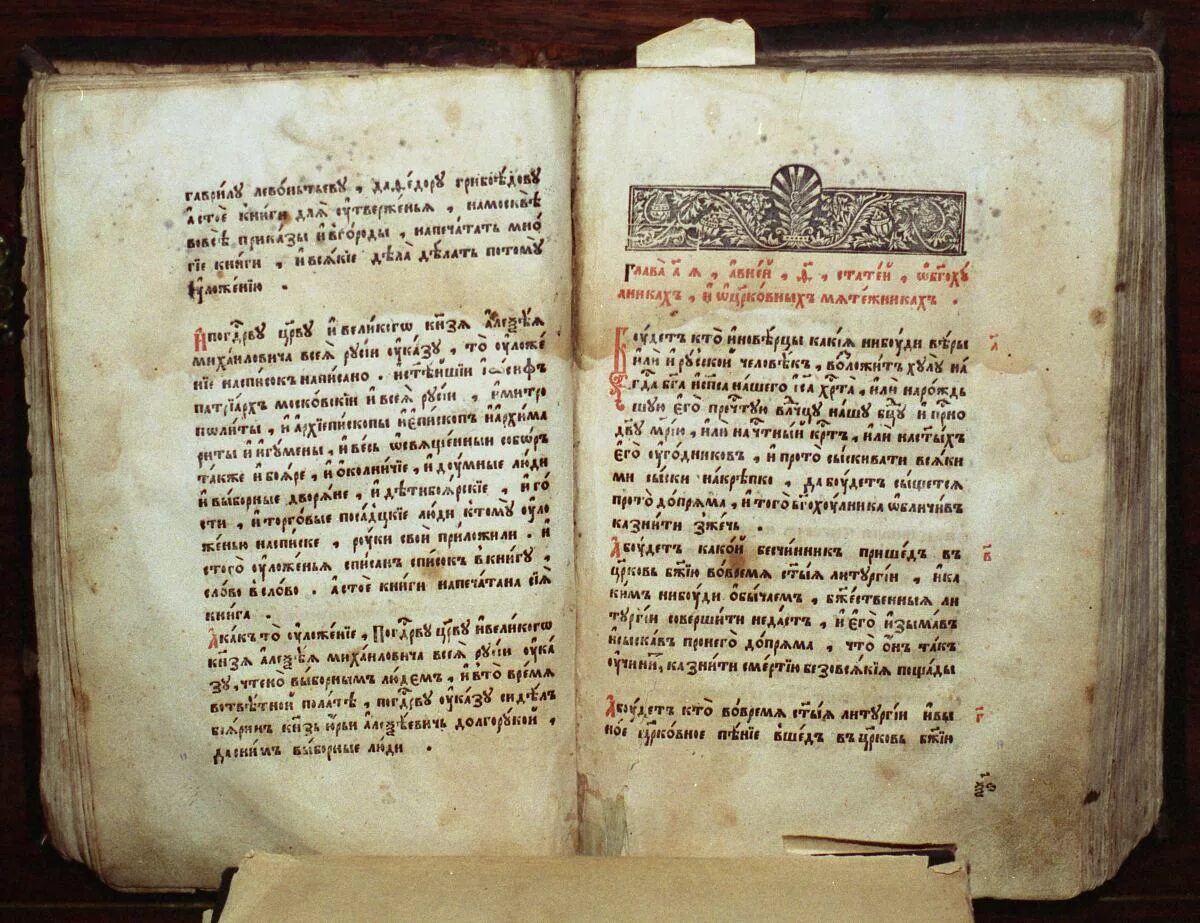 гаврилу левонътьеву , дафедору грибоѣдову
астоѐ книги для ѹтверженья , намосквѣ
вовсѣ приказы ивгороды , напечатать мно
гїе книги , ивсякїе дѣла дѣлать потому
ѹложенїю .
Ипогд҇рву цр҃ву ивеликогѡ кн҃зя алеѯѣя
михаиловича всея русїи ѹказу , то ѹложе
нїе насписокъ написано . истѣишїи іѡсифъ
патрїархъ московскїи ивсея русїи , имитро
политы , иархїепископы иепископъ иархима
риты иигумены , ивесь ѡсвященныи соборъ
также ибояре , иоколничїе , идоумные люди
ивыборные дворяне , идѣтибоярскїе , иго
сти , иторговые посадцкїе люди ктому ѹло
женью насписке , роуки свои приложили . и
стого ѹложенья списанъ списокъ вкнигу ,
слово вслово . астоѐ книги напечатана сїя
книга .
Акакъ то ѹложенїе , погд҇рву цр҃ву ивеликогѡ
кн҃зя алеѯѣя михаиловича всея русїи ѹка
зу , чтено выборнымъ людемъ , ивто время
вотвѣтной полатѣ , погд҇рву ѹказу сидѣлъ
бояринъ кн҃зь юрьи алеѯѣевичь долгорукой ,
даснимъ выборные люди .
Глава а҃ я , авней , ѳ҃ , статей , ѡбг҃оху
лникахъ , иѡцр҃ковныхъ мятежникахъ .
Боудетъ кто иновѣрцы какїя нибоуди вѣры
или ирусской человѣкъ , возложитъ хулу на
гд҇а бг҃а испс҃а нашего іс҃а хр҇та , или нарождь
шую его преч҇тую влд҇чцу нашу бц҃у ипр҇но
дв҃у мр҃їю , или начт҇ный кр҇тъ , или наст҃ыхъ
его ѹгодниковъ , ипрото сыскивати всяки
ми сыски накрѣпко , дабоудетъ сыщется
прото допряма , итого бг҃охоулника ѡбличивъ
казнити зжечь .
а҃
Абоудетъ какой бесчинникъ пришедъ въ
цр҃ковь бж҃їю вовремя ст҃ыя литургїи , ика
кимъ нибоуди обычаемъ , бж҇ественныя ли
тургїи совершити недастъ , иего изымавъ
исыскавъ пронего допряма , что онъ такъ
ѹчинитъ , казнити смертїю безовсякїя пощады
в҃
Абоудетъ кто вовремя ст҃ыя литургїи ивы
ное цр҃ковное пѣнїе вшедъ въцр҃ковь бж҃їю
г҃